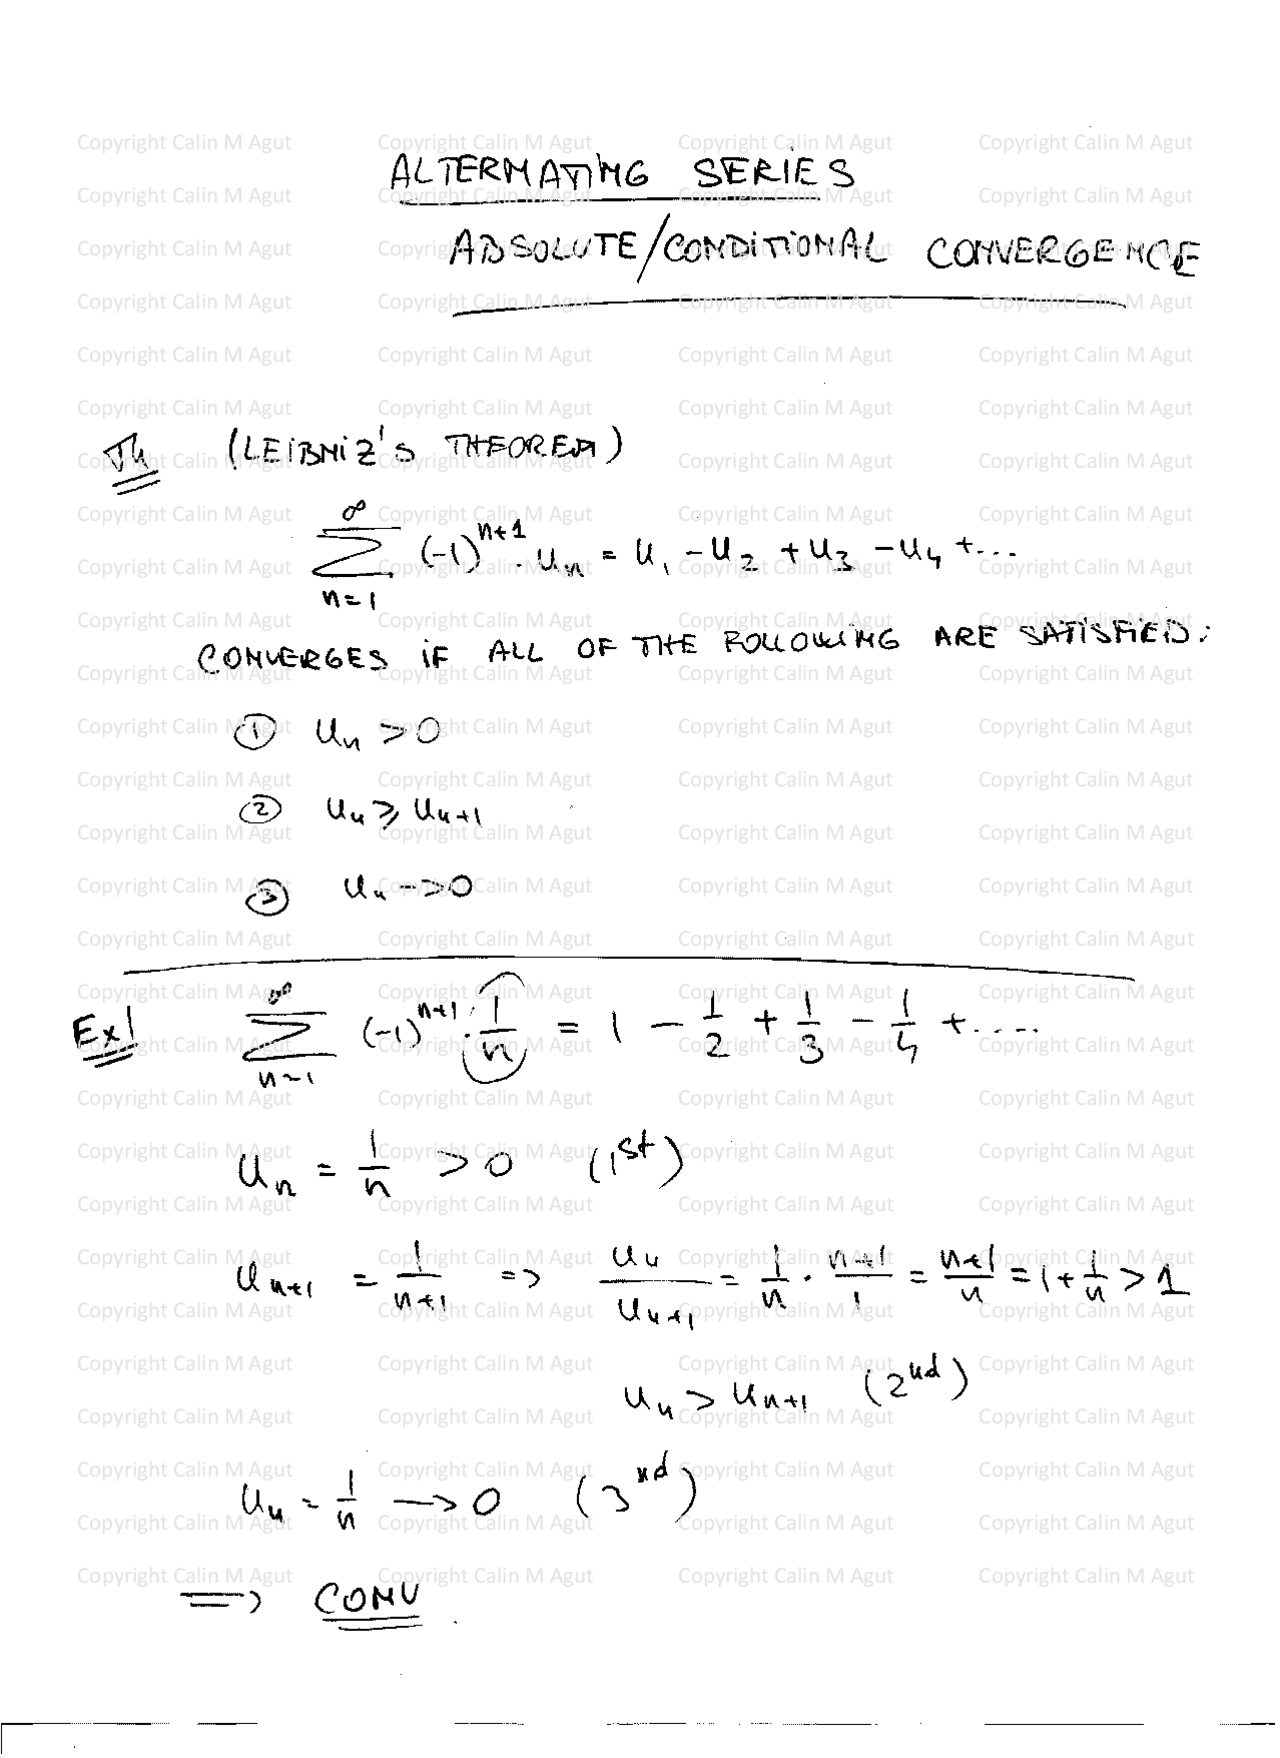 Copyright Calin M Agut
ALTERNATING SERIES
ABSOLUTE/CONDITIONAL CONVERGENCE
Th (LEIBNIZ'S THEOREM)
∞
∑ (-1)^{n+1} · u_n = u_1 - u_2 + u_3 - u_4 + ...
n=1
CONVERGES IF ALL OF THE FOLLOWING ARE SATISFIED:
① u_n > 0
② u_n ≥ u_{n+1}
③ u_n -> 0
∞
Ex1 ∑ (-1)^{n+1} · 1/n = 1 - 1/2 + 1/3 - 1/4 + ....
n=1
u_n = 1/n > 0 (1st)
u_{n+1} = 1/(n+1) => u_n/u_{n+1} = 1/n · (n+1)/1 = (n+1)/n = 1 + 1/n > 1
u_n > u_{n+1} (2nd)
u_n = 1/n -> 0 (3rd)
=> CONV